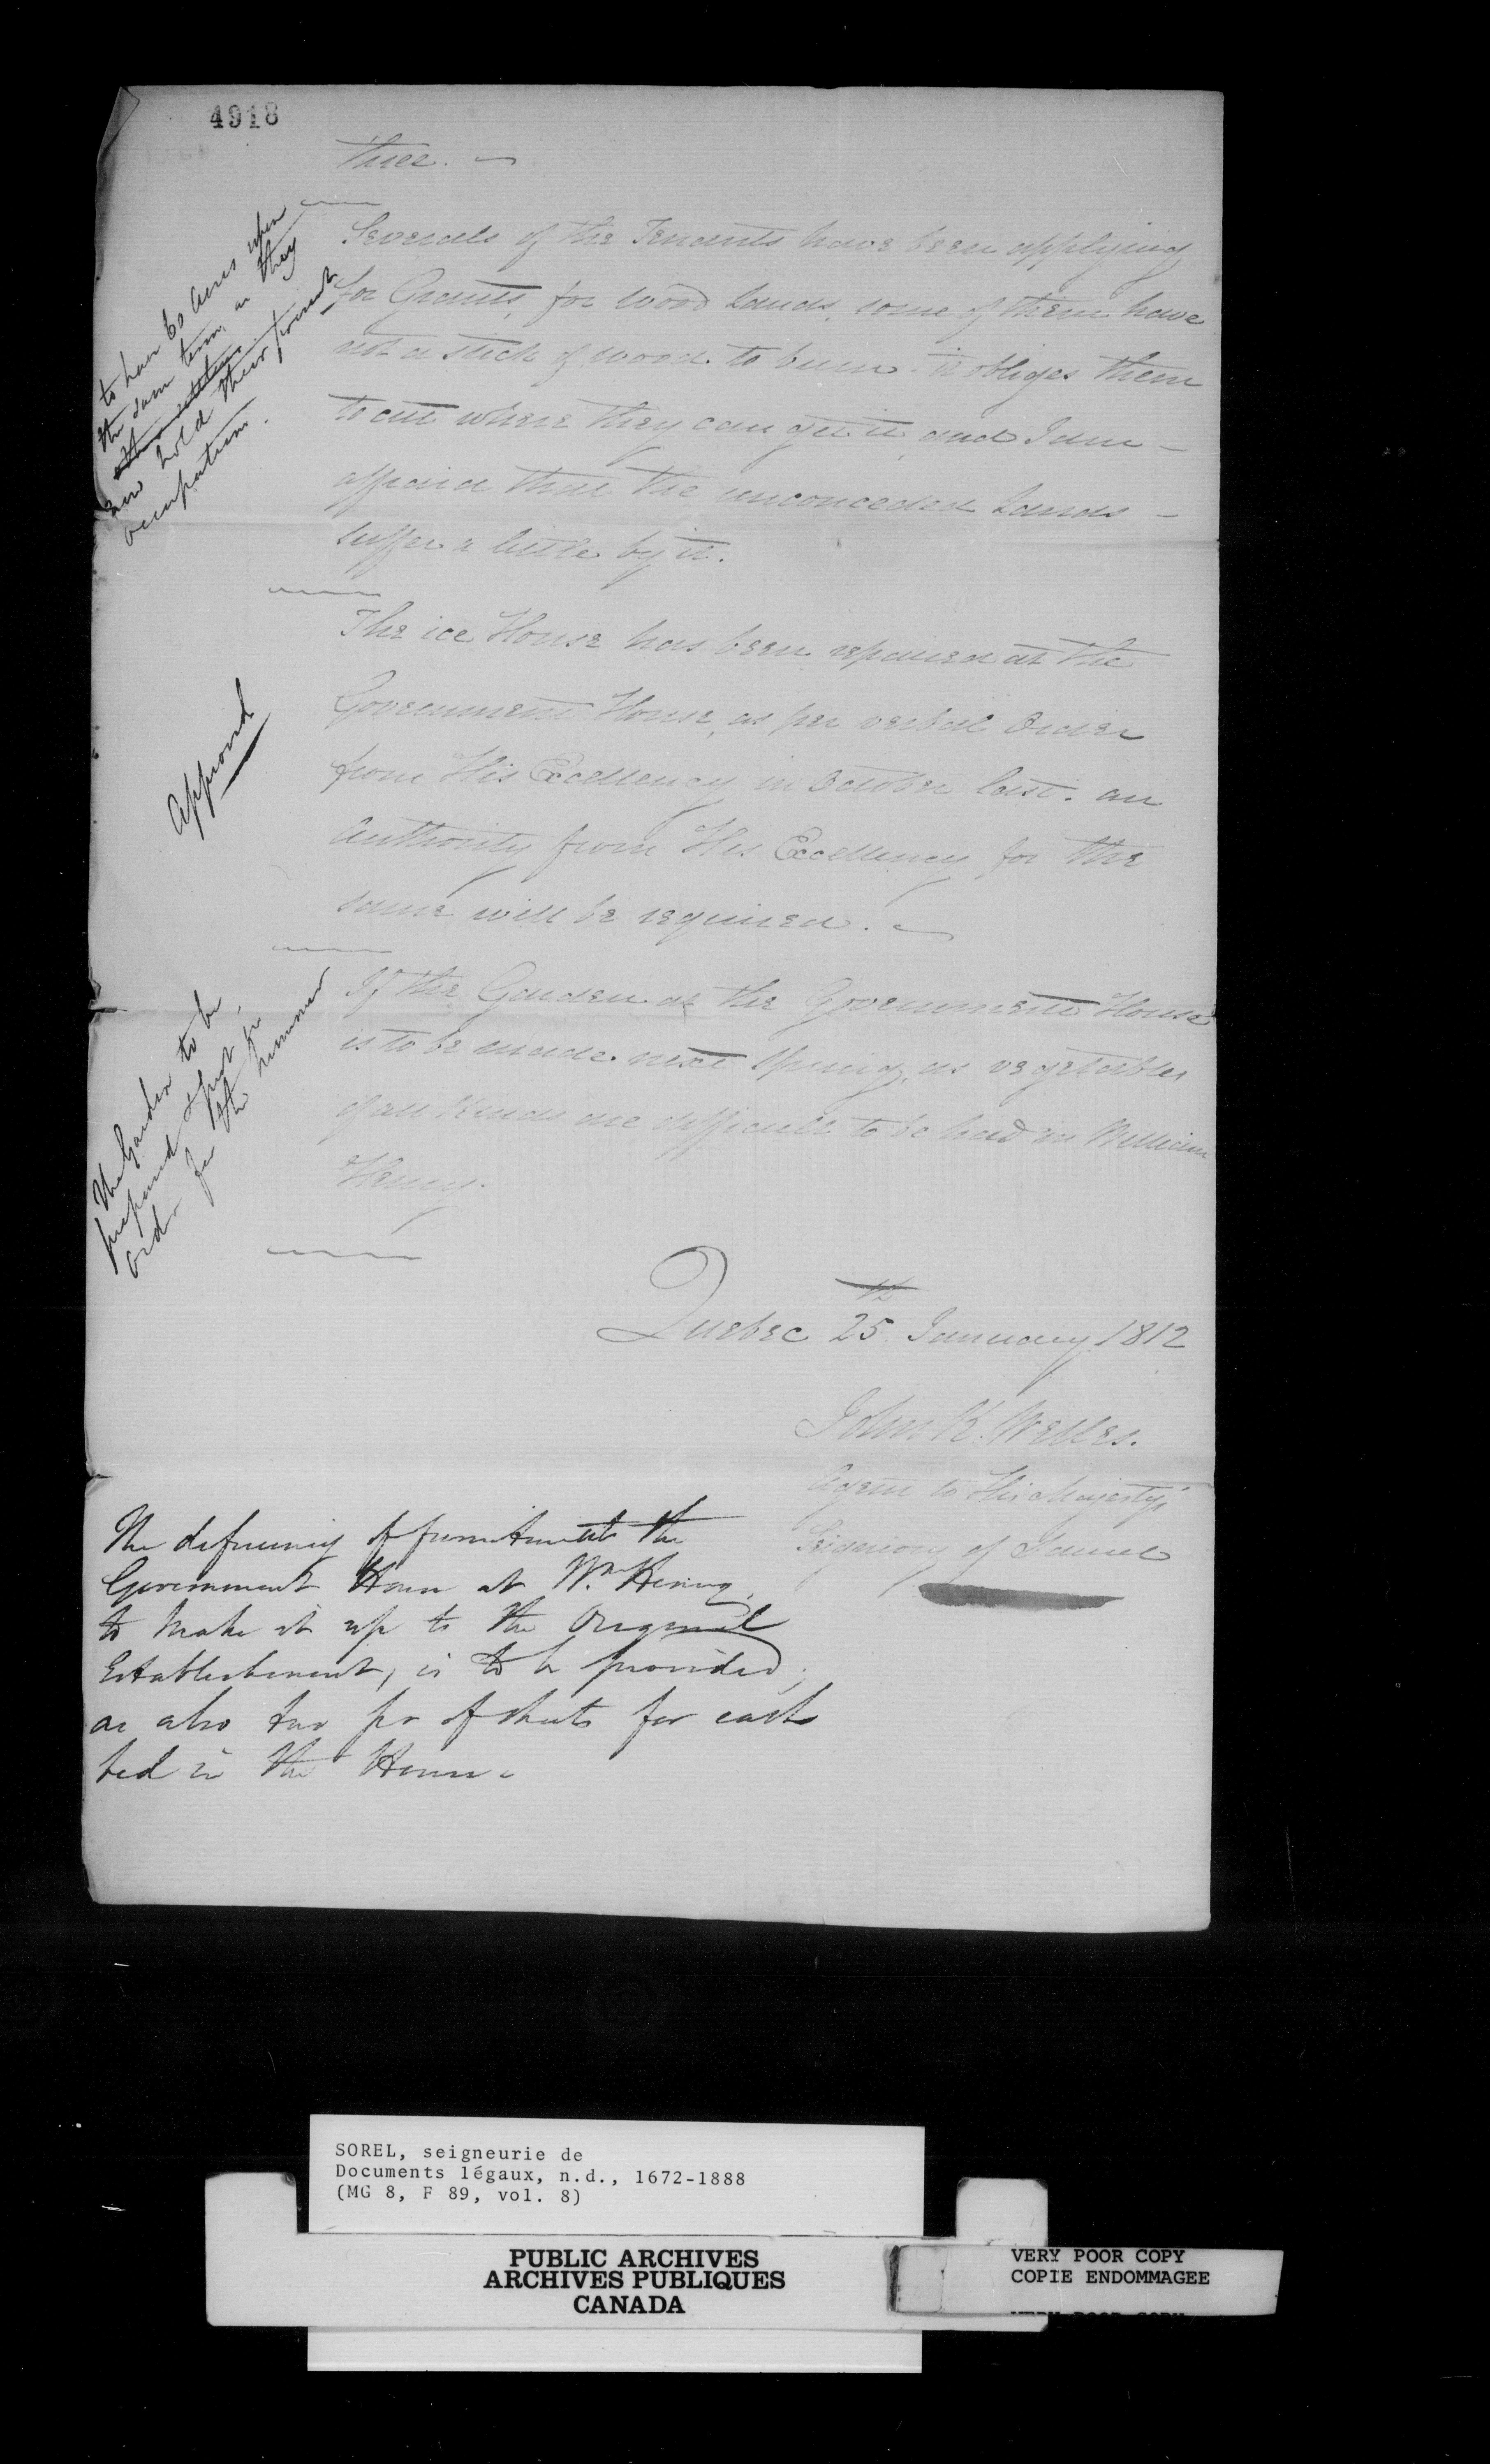 4918
three. —
Severals of the Tenants have been applying
for Grants, for wood Lands, some of them have
not a stick of wood to burn - it obliges them
to cut where they can get it, and I am -
affraid that the unconceded Lands -
suffer a little by it.
to have 60 Acres upon
the same terms, as they
now hold their present
occupation.
The ice House has been repaired at the
Government House, as per verbal Order
from His Excellency in October last. an
Authority from His Excellency for the
same will be required. —
Approved
If the Garden at the Government House
is to be made next Spring, as vegetables
of all Kinds are difficult to be had in William
Henry.
The Garden to be
prepared & put in
order for the summer
Quebec 25th January 1812
John K. Welles.
Agent to His Majesty's
Seigniory of Sorrel
The deficiency of furniture at the
Government House at Wm Henry,
to make it up to the Original
Establishment, is to be provided,
as also two pr of sheets for each
bed in the House.
SOREL, seigneurie de
Documents légaux, n.d., 1672-1888
(MG 8, F 89, vol. 8)
PUBLIC ARCHIVES
ARCHIVES PUBLIQUES
CANADA
VERY POOR COPY
COPIE ENDOMMAGEE
VERY POOR COPY